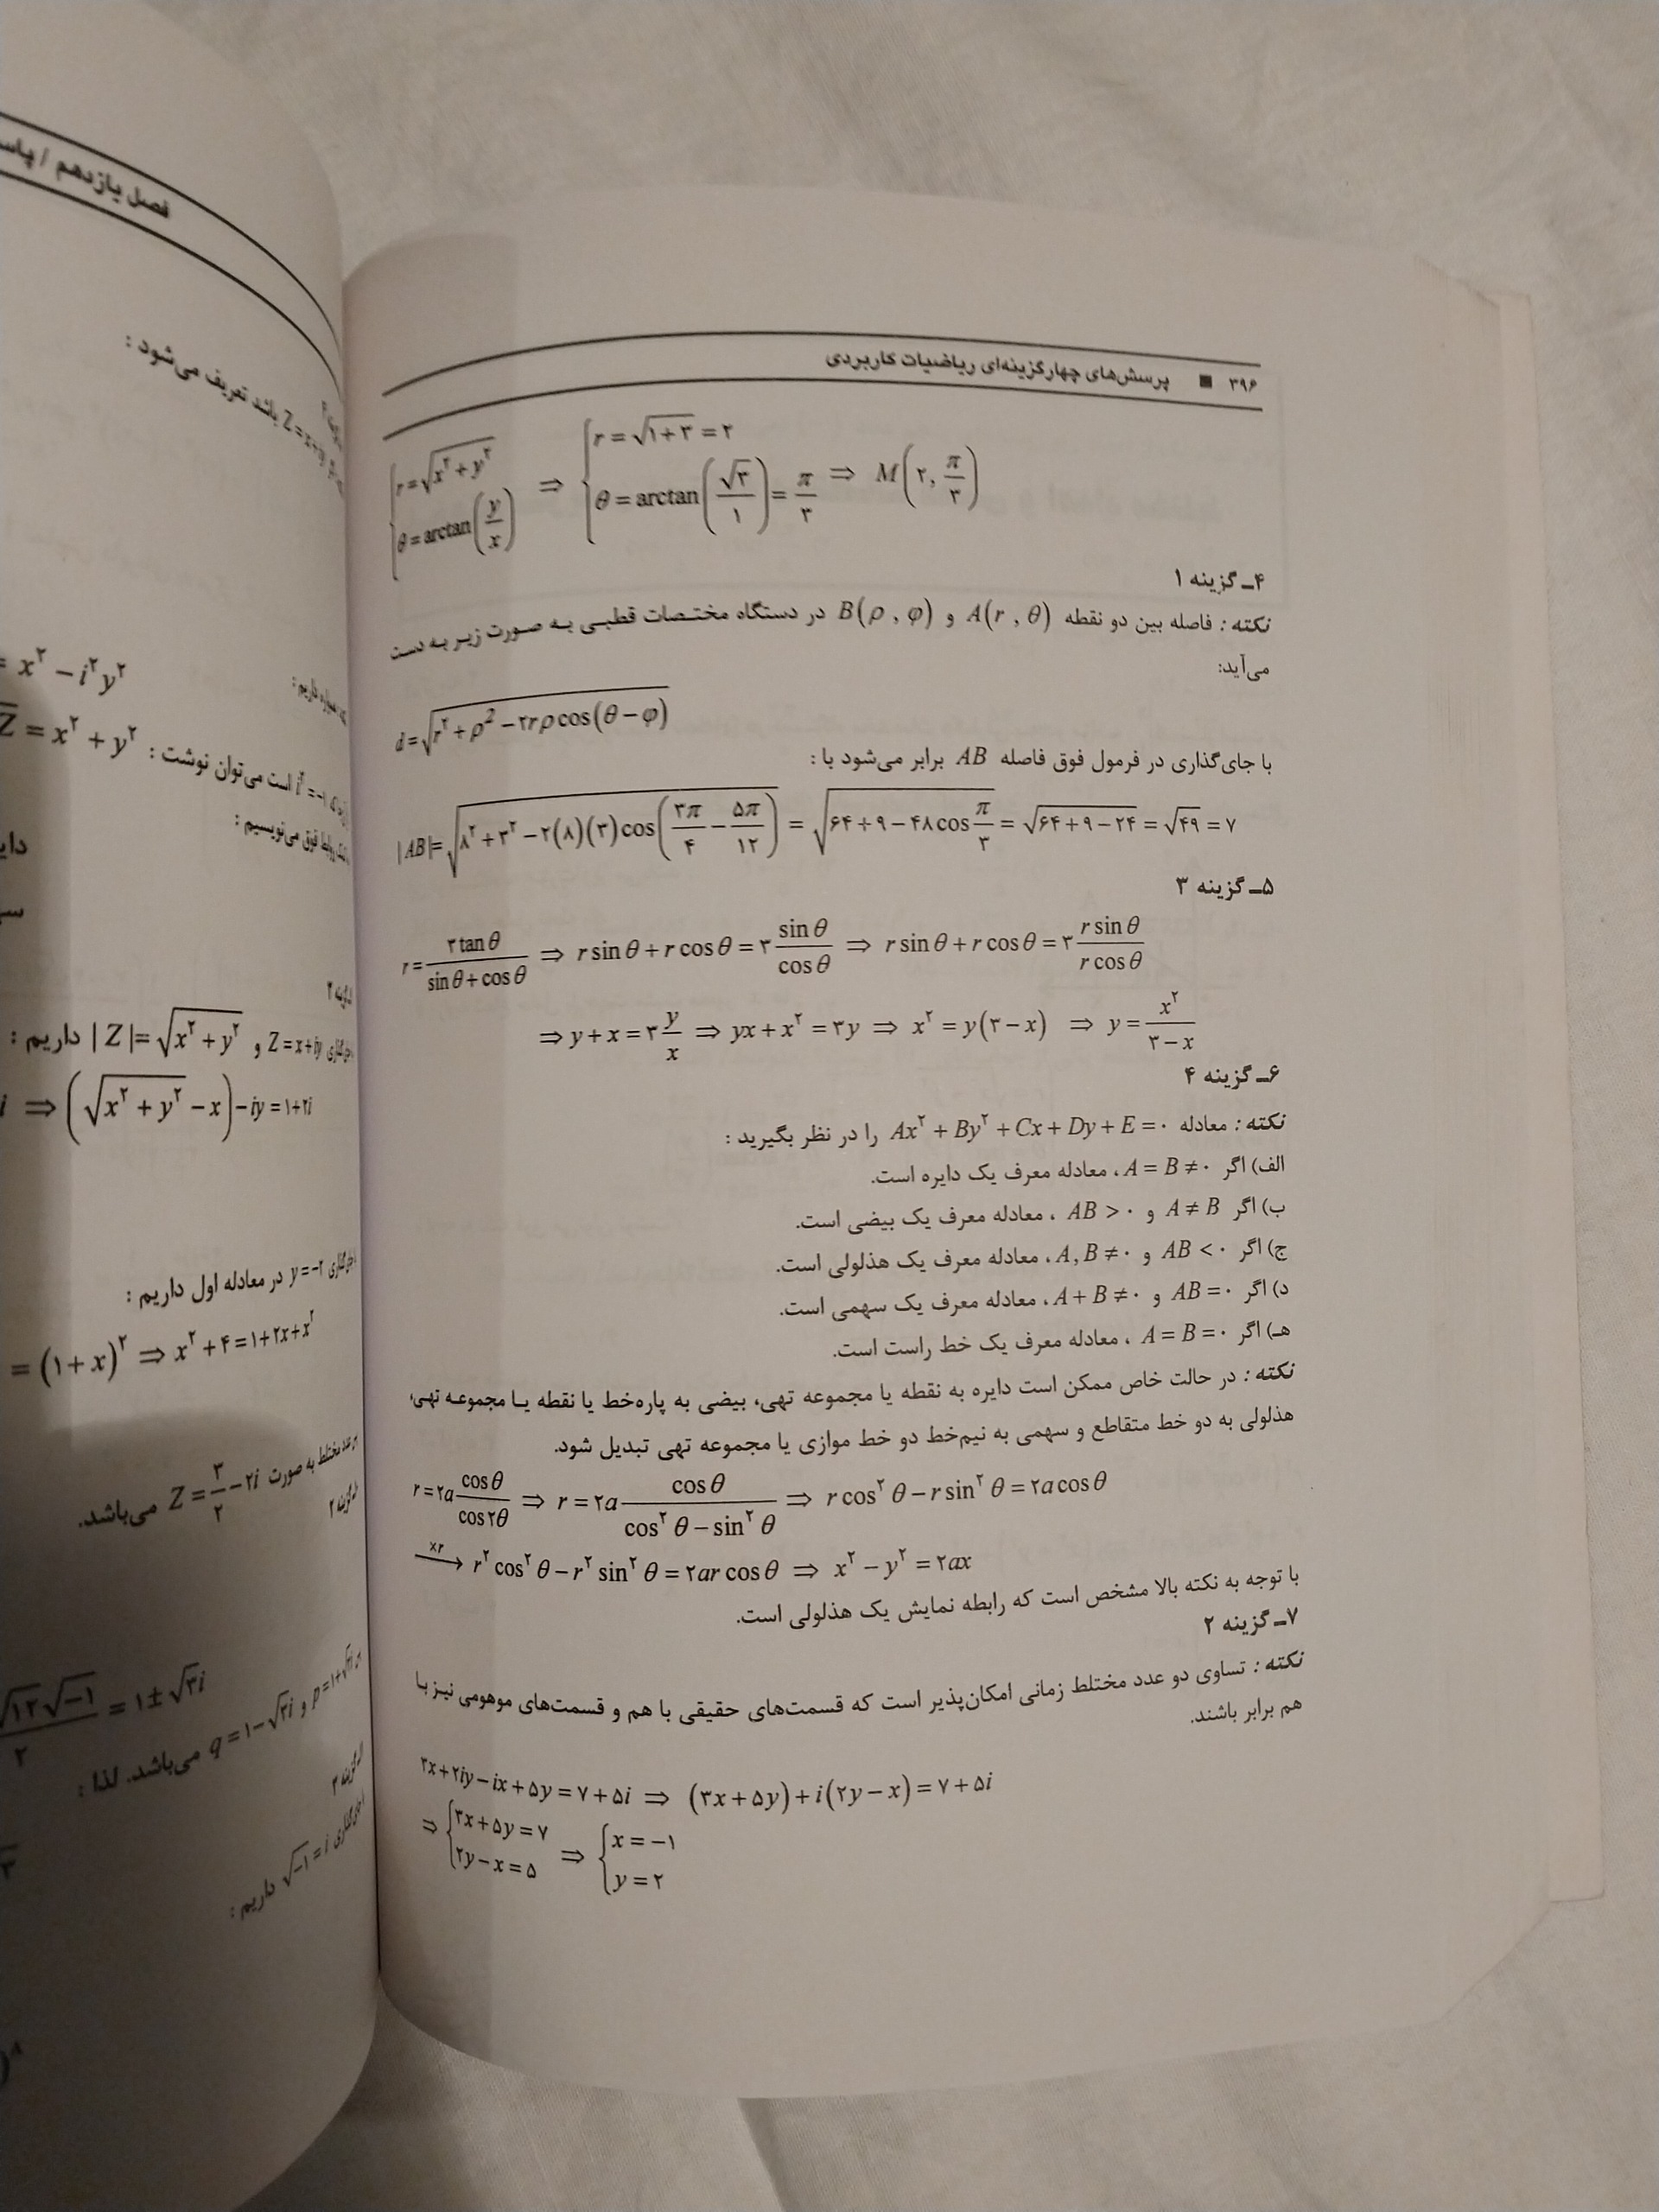 ۳۹۶ ■ پرسش‌های چهارگزینه‌ای ریاضیات کاربردی
{r = √(x² + y²) ⇒ {r = √(۱+۳) = ۲
θ = arctan(y/x) θ = arctan(√۳/۱) = π/۳ ⇒ M(۲, π/۳)
۴ـ گزینه ۱
نکته : فاصله بین دو نقطه A(r , θ) و B(ρ , φ) در دستگاه مختصات قطبی به صورت زیر به دست
می‌آید:
d = √(r² + ρ² − ۲rρ cos(θ − φ))
با جای‌گذاری در فرمول فوق فاصله AB برابر می‌شود با :
|AB| = √(۸² + ۳² − ۲(۸)(۳)cos(۳π/۴ − ۵π/۱۲)) = √(۶۴ + ۹ − ۴۸cos π/۳) = √(۶۴ + ۹ − ۲۴) = √۴۹ = ۷
۵ـ گزینه ۳
r = ۳tanθ/(sinθ + cosθ) ⇒ r sinθ + r cosθ = ۳ sinθ/cosθ ⇒ r sinθ + r cosθ = ۳ r sinθ/r cosθ
⇒ y + x = ۳ y/x ⇒ yx + x² = ۳y ⇒ x² = y(۳ − x) ⇒ y = x²/(۳ − x)
۶ـ گزینه ۴
نکته : معادله Ax² + By² + Cx + Dy + E = ۰ را در نظر بگیرید :
الف) اگر A = B ≠ ۰ ، معادله معرف یک دایره است.
ب) اگر A ≠ B و AB > ۰ ، معادله معرف یک بیضی است.
ج) اگر AB < ۰ و A, B ≠ ۰ ، معادله معرف یک هذلولی است.
د) اگر AB = ۰ و A + B ≠ ۰ ، معادله معرف یک سهمی است.
هـ) اگر A = B = ۰ ، معادله معرف یک خط راست است.
نکته : در حالت خاص ممکن است دایره به نقطه یا مجموعه تهی، بیضی به پاره‌خط یا نقطه یا مجموعه تهی،
هذلولی به دو خط متقاطع و سهمی به نیم‌خط دو خط موازی یا مجموعه تهی تبدیل شود.
r = ۲a cosθ/cos۲θ ⇒ r = ۲a cosθ/(cos²θ − sin²θ) ⇒ r cos²θ − r sin²θ = ۲a cosθ
×r→ r² cos²θ − r² sin²θ = ۲ar cosθ ⇒ x² − y² = ۲ax
با توجه به نکته بالا مشخص است که رابطه نمایش یک هذلولی است.
۷ـ گزینه ۲
نکته : تساوی دو عدد مختلط زمانی امکان‌پذیر است که قسمت‌های حقیقی با هم و قسمت‌های موهومی نیز با
هم برابر باشند.
۳x + ۲iy − ix + ۵y = ۷ + ۵i ⇒ (۳x + ۵y) + i(۲y − x) = ۷ + ۵i
⇒ {۳x + ۵y = ۷ ⇒ {x = −۱
۲y − x = ۵ y = ۲
فصل یازدهم /
Z = x+iy باشد تعریف می‌شود :
= x² − i²y²
= x² + y²
است می‌توان نوشت :
فوق می‌نویسیم :
Z = x+iy و |Z| = √(x² + y²) داریم :
⇒ (√(x² + y²) − x) − iy = ۱+۲i
y = −۲ در معادله اول داریم :
= (۱+x)² ⇒ x² + ۴ = ۱+۲x+x²
مختلط به صورت Z = ۳/۲ − ۲i می‌باشد.
√۱۲√−۱/۲ = ۱ ± √۳i
q = ۱−√۳i می‌باشد. لذا :
√−۱ = i داریم :